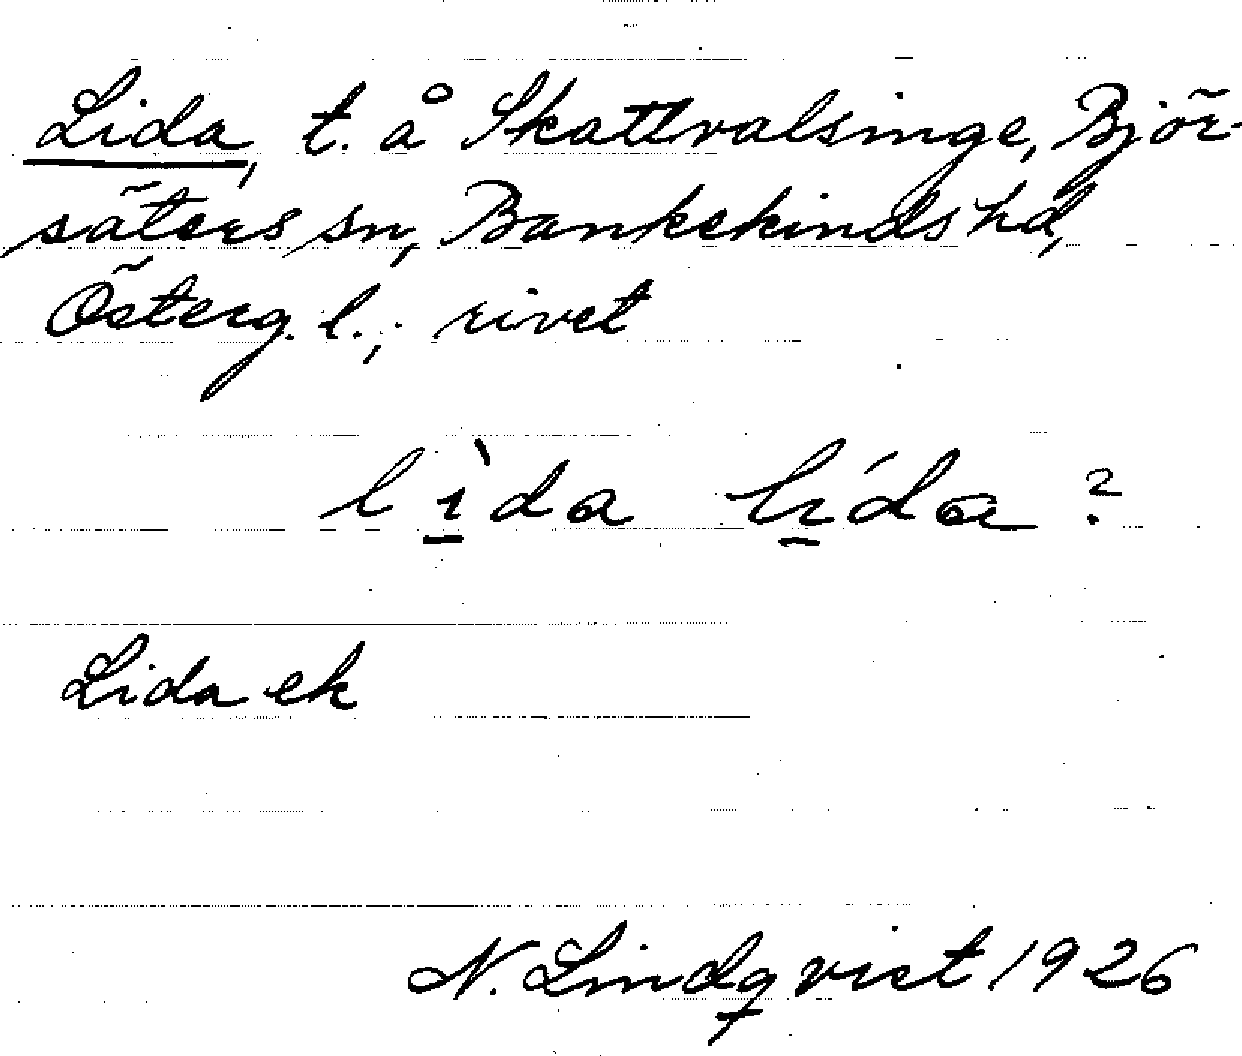 Lida, t. å Skattvalsinge, Björ-
säters sn, Bankekinds hd,
Österg. l.; rivet
lìda lída ?
Lida ek
N. Lindqvist 1926